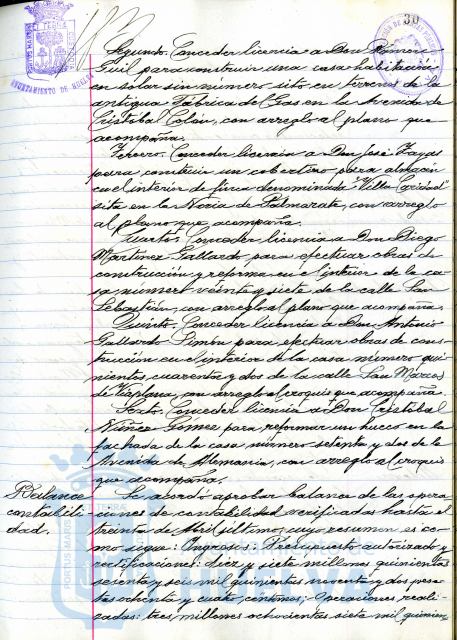 30
AYUNTAMIENTO DE HUELVA
Segundo. Conceder licencia a Don Ramón
Guil para construir una casa habitación
en solar sin número sito en terrenos de la
antigua Fábrica de Gas en la Avenida de
Cristóbal Colón, con arreglo al plano que
acompaña.
Tercero. Conceder licencia a Don José Zayas
para construir un cobertizo para almacén
en el interior de finca denominada "Villa Caridad"
sita en la Noria de Palmarate, con arreglo
al plano que acompaña.
Cuarto. Conceder licencia a Don Diego
Martínez Gallardo para efectuar obras de
construcción y reforma en el interior de la ca-
sa número veinte y siete de la calle San
Sebastián, con arreglo al plano que acompaña.
Quinto. Conceder licencia a Don Antonio
Gallardo Limón para efectuar obras de cons-
trucción en el interior de la casa número qui-
nientos cuarenta y dos de la calle San Marcos
de Viaplana, con arreglo al croquis que acompaña.
Sexto. Conceder licencia a Don Cristóbal
Núñez Gómez para reformar un hueco en la
fachada de la casa número setenta y dos de la
Avenida de Alemania, con arreglo al croquis
que acompaña.
Balance
contabili-
dad.
Se acordó aprobar balance de las opera-
ciones de contabilidad verificadas hasta el
treinta de Abril último, cuyo resumen es co-
mo sigue: Ingresos: Presupuesto autorizado y
rectificaciones: diez y siete millones quinientas
sesenta y seis mil quinientas noventa y dos pese-
tas ochenta y cuatro céntimos; Operaciones reali-
zadas: tres millones ochocientas siete mil quinien-